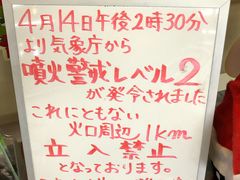 4月14日午後2時30分
より気象庁から
噴火警戒レベル2
が発令されました
これにともない
火口周辺1km
立入禁止
となっております。